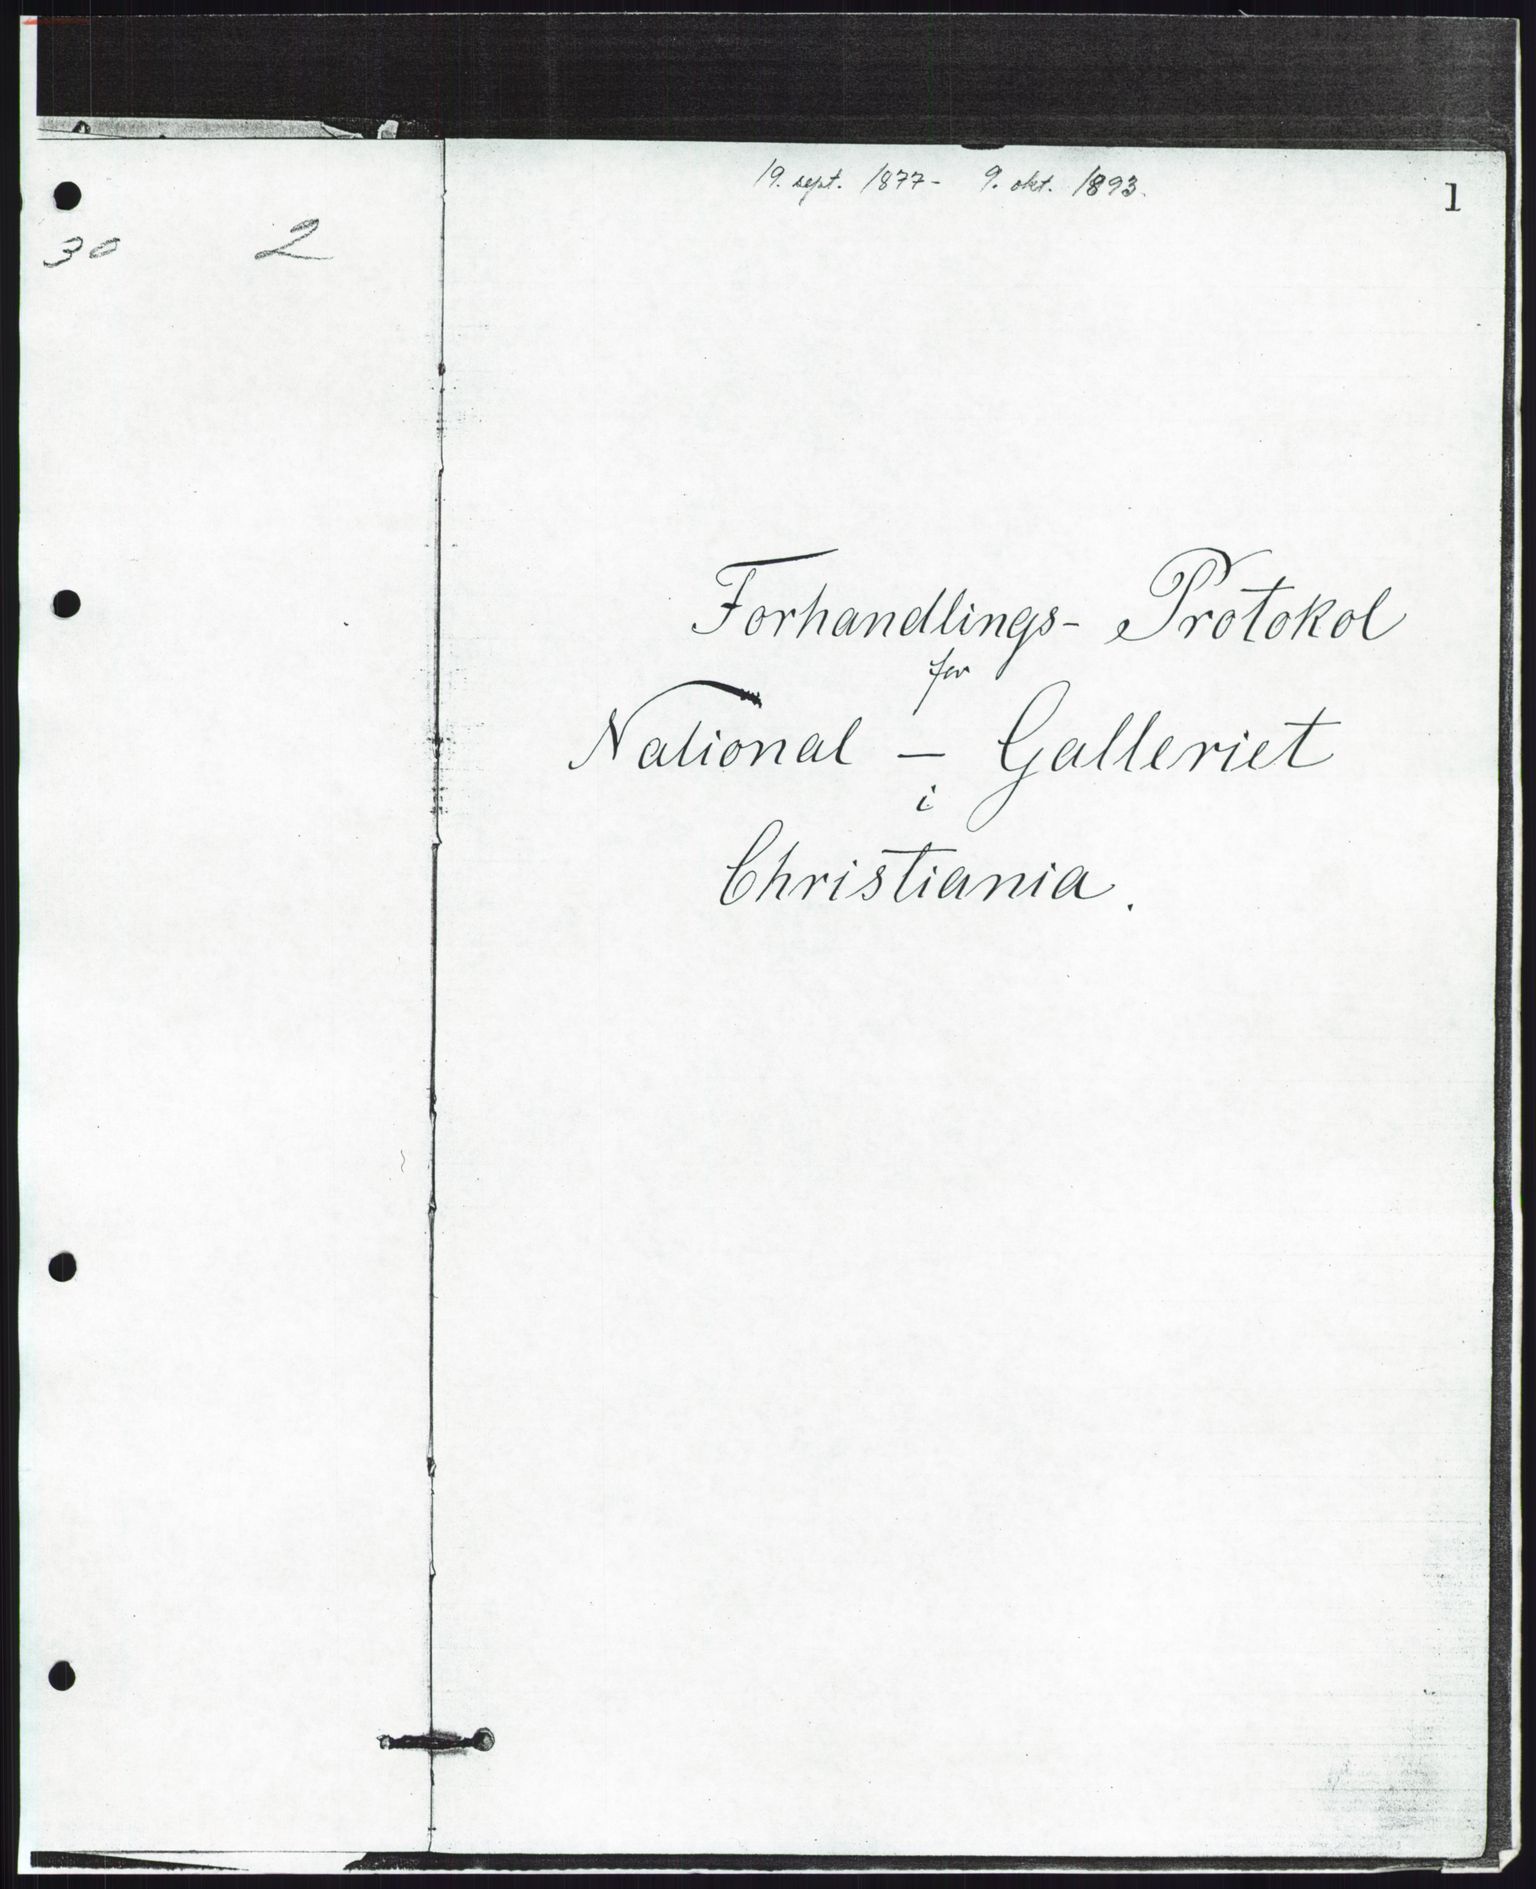 30 2
19. sept. 1877 - 9. okt. 1893.
1
Forhandlings- Protokol
for
National — Galleriet
i
Christiania.